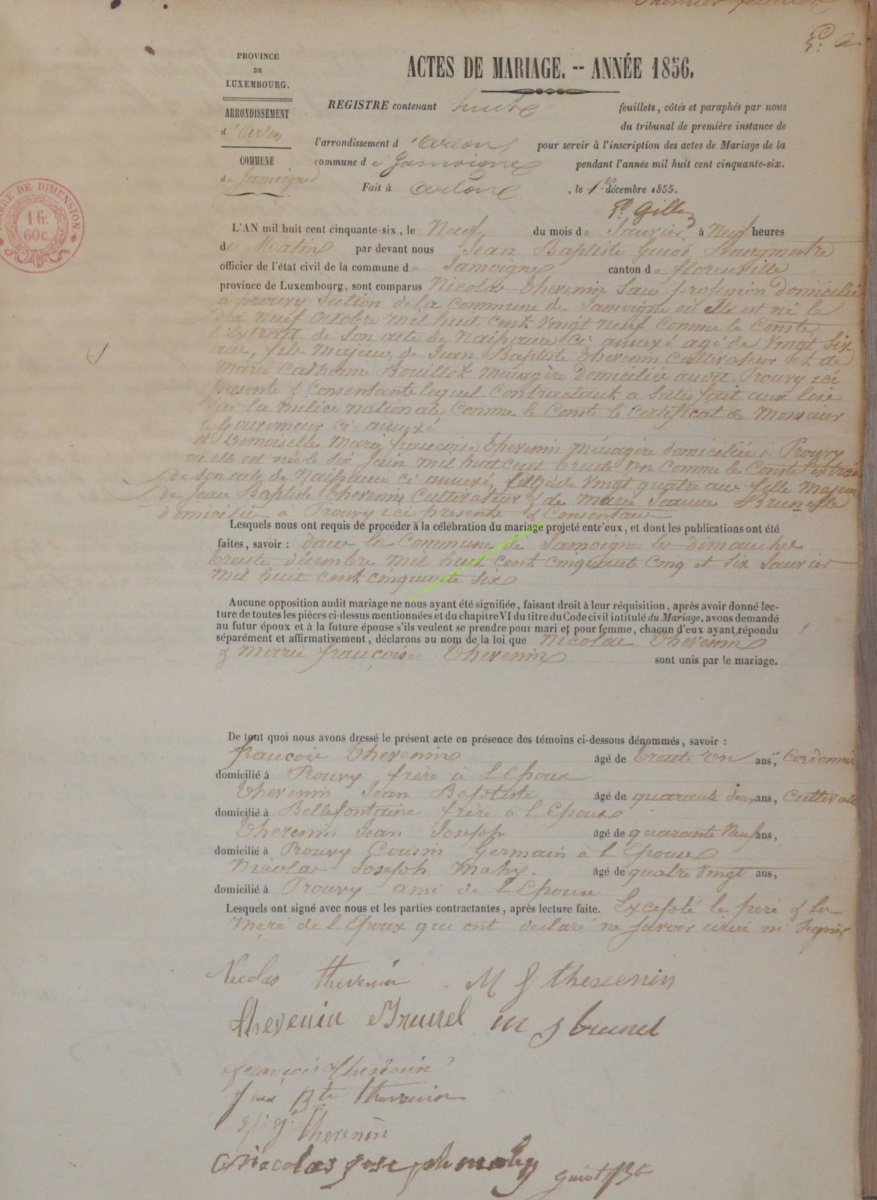 Premier feuillet
PROVINCE
DE
LUXEMBOURG.
ARRONDISSEMENT
d'Arlon
COMMUNE
de Jamoigne
TIMBRE DE DIMENSION
1 fr.
60c.
ACTES DE MARIAGE. -- ANNÉE 1856.
REGISTRE contenant huit feuillets, côtés et paraphés par nous
du tribunal de première instance de
l'arrondissement d'Arlon pour servir à l'inscription des actes de Mariage de la
commune de Jamoigne pendant l'année mil huit cent cinquante-six.
Fait à Arlon, le 1er décembre 1855.
L'AN mil huit cent cinquante-six, le Neuf du mois de Janvier à Neuf heures
du Matin par devant nous Jean Baptiste Bourgmestre
officier de l'état civil de la commune de Jamoigne canton de florenville
province de Luxembourg, sont comparus Nicolas Thevenin Sans profession domicilié
à prouvy Section de la Commune de Jamoigne où il est né le
Dix Neuf Octobre Mil huit Cent Vingt Neuf Comme le Conste
l'Extrait de Son acte de Naissance Ci annexé agé de Vingt Six
ans, fils Majeur de Jean Baptiste Thevenin Cultivateur Et de
Marie Catherine Bouillot Ménagère Domiciliés audit Prouvy ici
présents & Consentants lequel Contractant a Satisfait aux lois
Sur la milice Nationale Comme le Conste le Certificat de Monsieur
le Gouverneur ci annexé
Et Demoiselle Marie francoise Thevenin Ménagère domiciliée à Prouvy
ou elle est née le Six Juin Mil huit Cent trente Un Comme le Conste l'Extrait
de Son acte de Naissance Ci annexé, Agée de Vingt quatre ans fille Majeure
de Jean Baptiste Thevenin Cultivateur & de Marie Jeanne Brunel
domiciliés à Prouvy ici présents & Consentans
Lesquels nous ont requis de procéder à la célébration du mariage projeté entr'eux, et dont les publications ont été
faites, savoir : dans la Commune de Jamoigne les dimanches
trente décembre Mil huit Cent Cinquante Cinq et Six Janvier
Mil huit Cent cinquante Six
Aucune opposition audit mariage ne nous ayant été signifiée, faisant droit à leur réquisition, après avoir donné lec-
ture de toutes les pièces ci-dessus mentionnées et du chapitre VI du titre du Code civil intitulé du Mariage, avons demandé
au futur époux et à la future épouse s'ils veulent se prendre pour mari et pour femme, chacun d'eux ayant répondu
séparément et affirmativement, déclarons au nom de la loi que Nicolas Thevenin
& Marie francoise Thevenin sont unis par le mariage.
De tout quoi nous avons dressé le présent acte en présence des témoins ci-dessous dénommés, savoir :
francois Thevenin âgé de trente Un ans, Cordonnier
domicilié à Prouvy frère à l'Epoux
Thevenin Jean Baptiste âgé de quarante deux ans, Cultivateur
domicilié à Bellefontaine frère à l'Epoux
Thevenin Jean Joseph âgé de quarante Neuf ans,
domicilié à Prouvy Cousin Germain à l'Epouse
Nicolas Joseph Mahy âgé de quatre Vingt ans,
domicilié à Prouvy ami de l'Epouse
Lesquels ont signé avec nous et les parties contractantes, après lecture faite. Excepté le père & la
Mère de l'Epoux qui ont déclaré ne Savoir écrire ni Signer
Nicolas thevenin M f thevenin
thevenin Brunel m j brunel
françois thevenin
Jean Bte thevenin
thevenin
Nicolas Joseph mahy